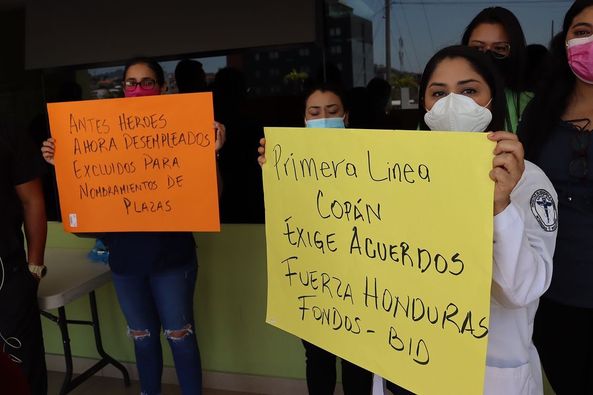 ANTES HEROES
AHORA DESEMPLEADOS
EXCLUIDOS PARA
NOMBRAMIENTOS DE
PLAZAS
Primera Linea
COPÁN
EXIGE ACUERDOS
FUERZA HONDURAS
FONDOS-BID